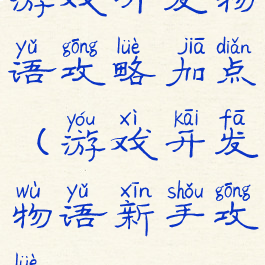 游戏开发物
yǔ gōng lüè jiā diǎn
语攻略加点
yóu xì kāi fā
（游戏开发
wù yǔ xīn shǒu gōng
物语新手攻
lüè